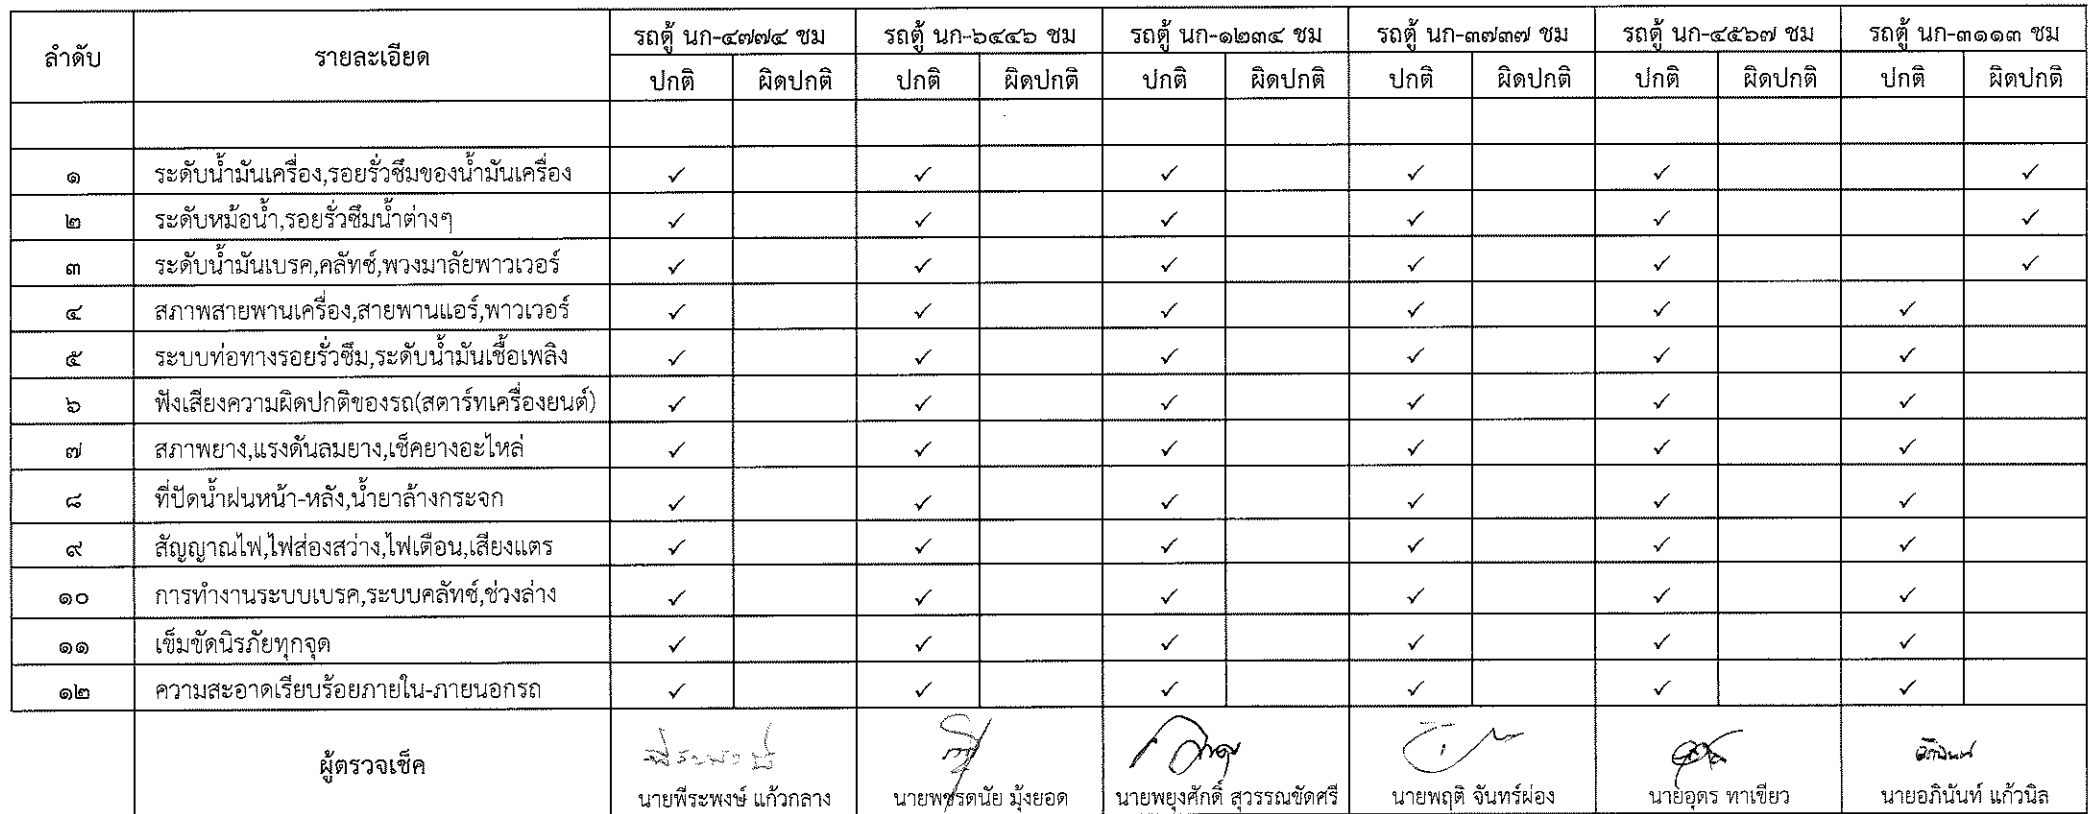 ลำดับ รายละเอียด รถตู้ นก-๔๗๗๔ ชม รถตู้ นก-๖๔๔๖ ชม รถตู้ นก-๑๒๓๔ ชม รถตู้ นก-๓๗๓๗ ชม รถตู้ นก-๔๕๖๗ ชม รถตู้ นก-๓๑๑๓ ชม
ปกติ ผิดปกติ ปกติ ผิดปกติ ปกติ ผิดปกติ ปกติ ผิดปกติ ปกติ ผิดปกติ ปกติ ผิดปกติ
๑ ระดับน้ำมันเครื่อง,รอยรั่วซึมของน้ำมันเครื่อง ✓ ✓ ✓ ✓ ✓ ✓
๒ ระดับหม้อน้ำ,รอยรั่วซึมน้ำต่างๆ ✓ ✓ ✓ ✓ ✓ ✓
๓ ระดับน้ำมันเบรค,คลัทซ์,พวงมาลัยพาวเวอร์ ✓ ✓ ✓ ✓ ✓ ✓
๔ สภาพสายพานเครื่อง,สายพานแอร์,พาวเวอร์ ✓ ✓ ✓ ✓ ✓ ✓
๕ ระบบท่อทางรอยรั่วซึม,ระดับน้ำมันเชื้อเพลิง ✓ ✓ ✓ ✓ ✓ ✓
๖ ฟังเสียงความผิดปกติของรถ(สตาร์ทเครื่องยนต์) ✓ ✓ ✓ ✓ ✓ ✓
๗ สภาพยาง,แรงดันลมยาง,เช็คยางอะไหล่ ✓ ✓ ✓ ✓ ✓ ✓
๘ ที่ปัดน้ำฝนหน้า-หลัง,น้ำยาล้างกระจก ✓ ✓ ✓ ✓ ✓ ✓
๙ สัญญาณไฟ,ไฟส่องสว่าง,ไฟเตือน,เสียงแตร ✓ ✓ ✓ ✓ ✓ ✓
๑๐ การทำงานระบบเบรค,ระบบคลัทซ์,ช่วงล่าง ✓ ✓ ✓ ✓ ✓ ✓
๑๑ เข็มขัดนิรภัยทุกจุด ✓ ✓ ✓ ✓ ✓ ✓
๑๒ ความสะอาดเรียบร้อยภายใน-ภายนอกรถ ✓ ✓ ✓ ✓ ✓ ✓
ผู้ตรวจเช็ค พีระพงษ์ อภินันท์
นายพีระพงษ์ แก้วกลาง นายพชรดนัย มุ้งยอด นายพยุงศักดิ์ สุวรรณขัดศรี นายพฤติ จันทร์ผ่อง นายอุดร ทาเขียว นายอภินันท์ แก้วนิล